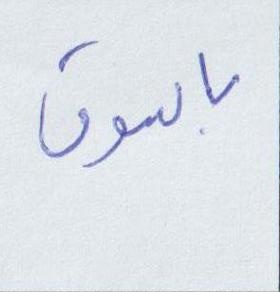 بالسوق